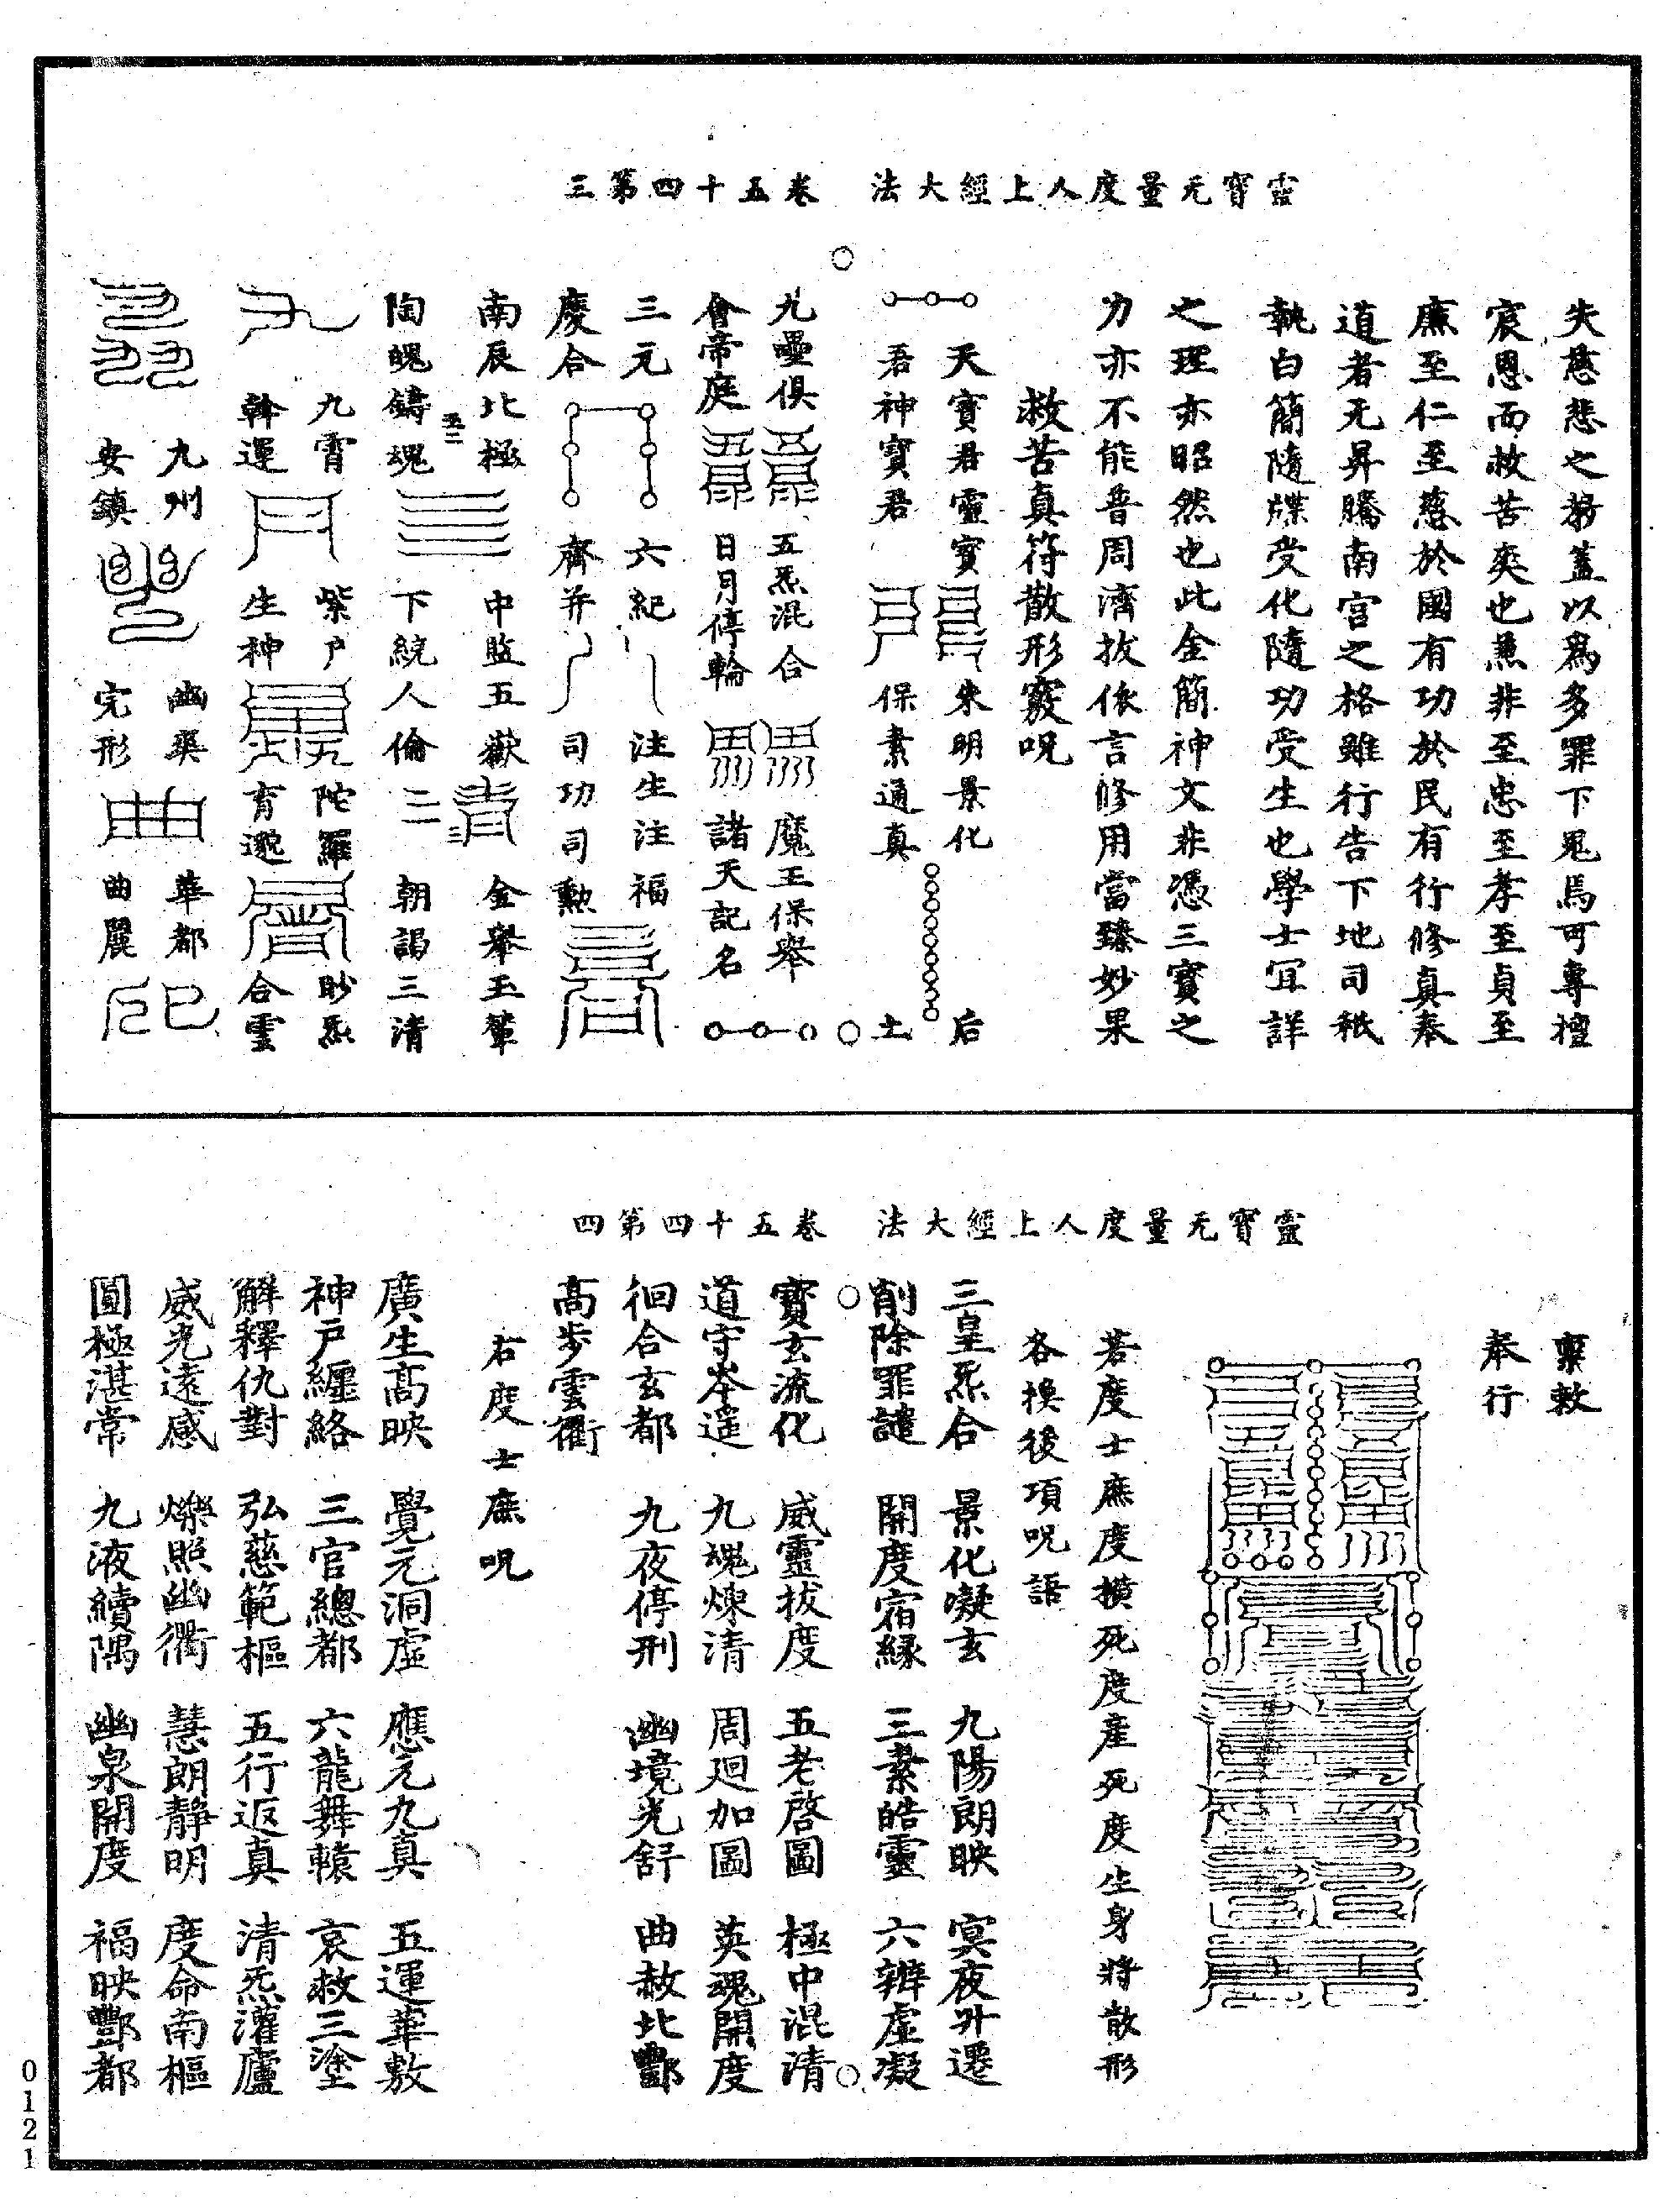 靈寶无量度人上經大法　卷五十四第三
失慈悲之務蓋以為多罪下鬼焉可專擅
宸恩而救苦爽也兼非至忠至孝至貞至
廉至仁至慈於國有功於民有行修真奉
道者无昇騰南宮之格雖行告下地司秖
執白簡隨牒受化隨功受生也學士冝詳
之理亦昭然也此金簡神文非憑三寶之
力亦不能普周濟拔依言修用當臻妙果
救苦真符散形竅呪
天寶君靈寶　朱明景化　后
吾神寶君　保素通真　土
九壘俱　五炁混合　魔王保舉
會帝庭　日月停輪　諸天記名
三元　六紀　注生注福
慶合　齊并　司功司勳
南辰北極　中監五嶽　金舉玉輦
陶魄鑄魂　下統人倫　朝謁三清
九霄　紫户　陀羅　眇炁
斡運　生神　育邈　合雲
九州　幽爽　華都
安鎮　完形　曲麗
靈寶无量度人上經大法　卷五十四第四
稟敕
奉行
若度士庶度橫死度產死度生身將散形
各換後項呪語
三皇炁合　景化凝玄　九陽朗映　冥夜升遷
削除罪譴　開度宿緣　三素皓靈　六辯虛凝
寶玄流化　威靈拔度　五老啓圖　極中混清
道守岑遥　九魂煉清　周迴加圖　英魂開度
徊合玄都　九夜停刑　幽境光舒　曲赦北酆
高步雲衢
右度士庶呪
廣生高映　覺元洞虛　應元九真　五運華敷
神戶纏絡　三官總都　六龍舞轅　哀救三塗
解釋仇對　弘慈範樞　五行返真　清炁灌廬
威光遠感　爍照幽衢　慧朗靜明　度命南樞
圓極湛常　九液續隅　幽泉開度　福映酆都
0121